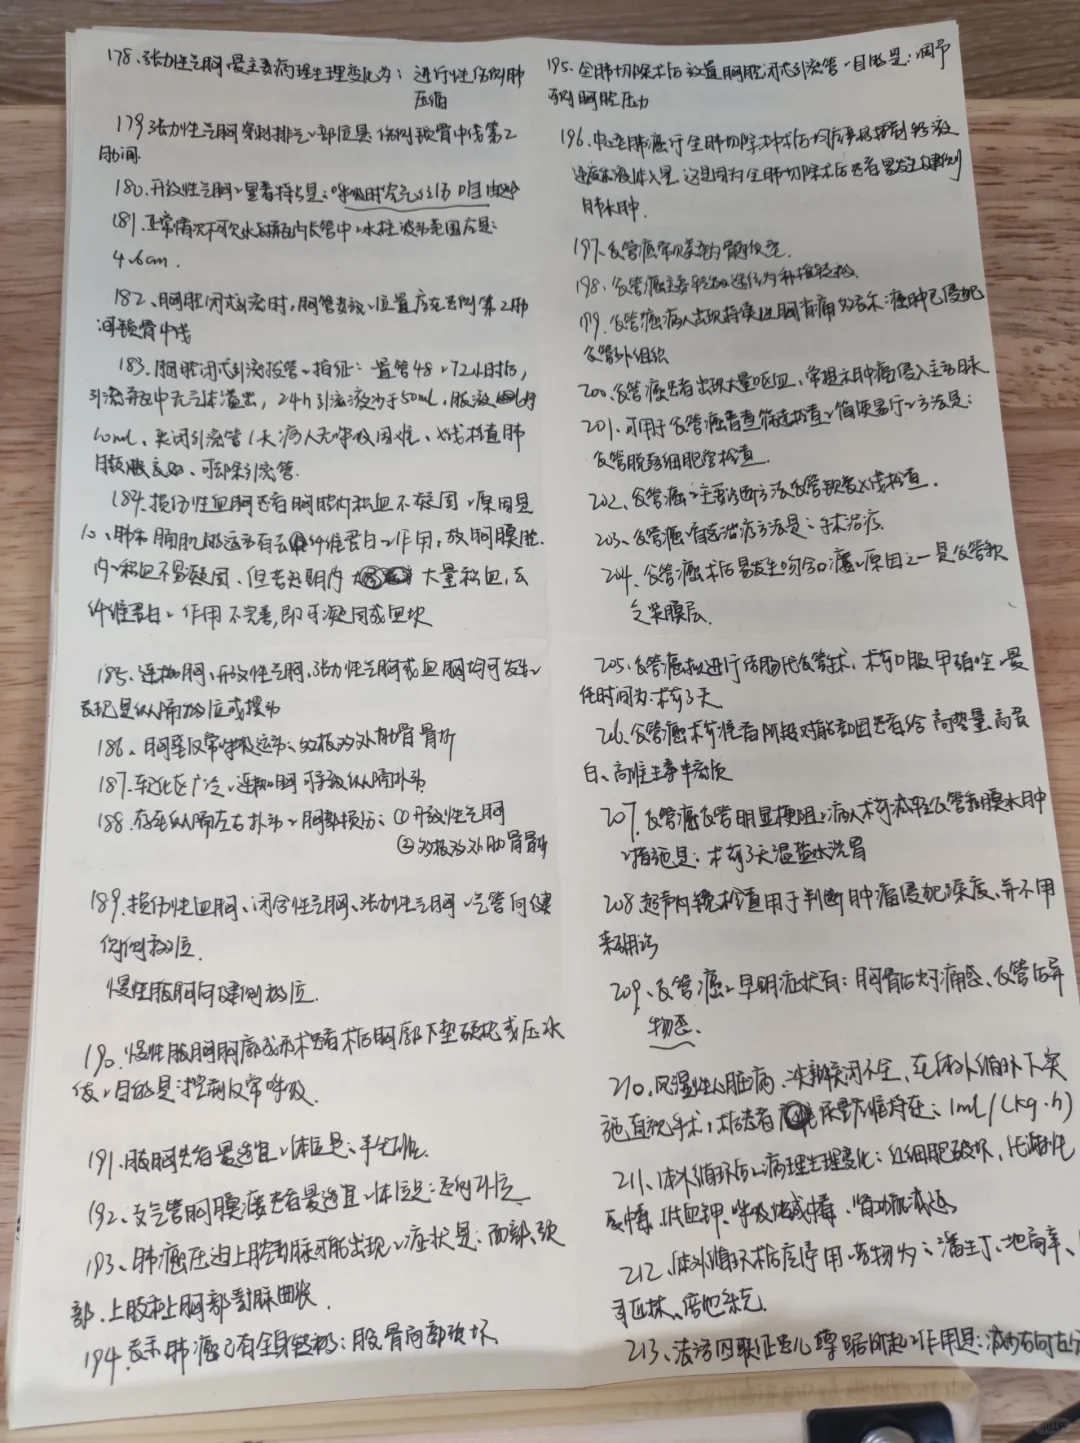 178、张力性气胸最主要病理生理变化为：进行性伤侧肺
压缩
179 张力性气胸穿刺排气 部位是伤侧锁骨中线第2
肋间
180、开放性气胸 显著特点是：呼吸时空气经伤口自由
181、正常情况下水封瓶内长管中 水柱波动范围应是：
4~6cm.
182、胸腔闭式引流时，胸管安放 位置应在患侧第2肋
间锁骨中线
183、胸腔闭式引流拔管 指征：置管48~72小时后，
引流瓶中无气体溢出，24h引流液少于50mL，脓液
10mL、夹闭引流管1天病人无呼吸困难、X线检查肺
膨胀良好、可却除引流管.
184、损伤性血胸患者胸腔内积血不凝固 原因是
心、肺和膈肌的运动有去纤维蛋白 作用，故胸膜腔
内 积血不易凝固、但若短期内 大量积血，去
纤维蛋白 作用不完善，即可凝固成血块
185、连枷胸、开放性气胸、张力性气胸或血胸均可发生
表现是纵隔移位或摆动
186、胸壁反常呼吸运动：多根多处肋骨骨折
187、软化区广泛 连枷胸可导致纵隔扑动
188、存在纵隔左右扑动 胸部损伤：①开放性气胸
②多根多处肋骨骨折
189、损伤性血胸、闭合性气胸、张力性气胸 气管向健
侧移位.
慢性脓胸向健侧移位.
190、慢性脓胸胸廓成形术患者术后胸廓下垫硬枕或压沙
袋 目的是：控制反常呼吸.
191、脓胸患者最适宜 体位是：半卧位.
192、支气管胸膜瘘患者最适宜 体位是：患侧卧位
193、肺癌压迫上腔静脉可能出现 症状是：面部、颈
部、上肢和上胸部静脉曲张.
194、表示肺癌已有全身转移：股骨局部破坏
195、全肺切除术后放置胸腔闭式引流管 目的是：调节
两侧胸腔压力
196、中央型肺癌行全肺切除术术后均应严格控制输液
速度和液体入量，这是因为全肺切除术后患者易发生健侧
肺水肿.
197、食管癌常见类型为髓质型.
198、食管癌主要转移途径为淋巴转移.
199、食管癌病人出现持续性胸背痛多表示：癌肿已侵犯
食管外组织
200、食管癌患者出现大量呕血，常提示肿瘤侵入主动脉
201、可用于食管癌普查筛选检查 简便易行 方法是：
食管脱落细胞学检查.
202、食管癌 主要诊断方法食管钡餐X线检查.
203、食管癌 首选治疗方法是：手术治疗.
204、食管癌术后易发生吻合口瘘 原因之一是食管缺
乏浆膜层.
205、食管癌拟进行结肠代食管术，术前口服甲硝唑 最
佳时间为：术前3天
206、食管癌术前准备阶段对能进食患者给高热量、高蛋
白、高维生素半流质
207、食管癌食管明显梗阻 病人术前减轻食管黏膜水肿
措施是：术前3天温盐水洗胃
208 超声内镜检查用于判断肿瘤侵犯深度、并不用
来确诊
209、食管癌 早期症状有：胸骨后灼痛感、食管后异
物感、
210、风湿性心脏病、二尖瓣关闭不全、在体外循环下实
施直视手术，术后患者 尿量应维持在：1mL/(kg·h)
211、体外循环后 病理生理变化：红细胞破坏、代谢性
酸中毒、低血钾、呼吸性碱中毒、肾功能减退
212、体外循环术后应停用 药物为：潘生丁、地高辛、
阿匹林、倍他乐克.
213、法洛四联症患儿蹲踞所起 作用是：减少右向左分